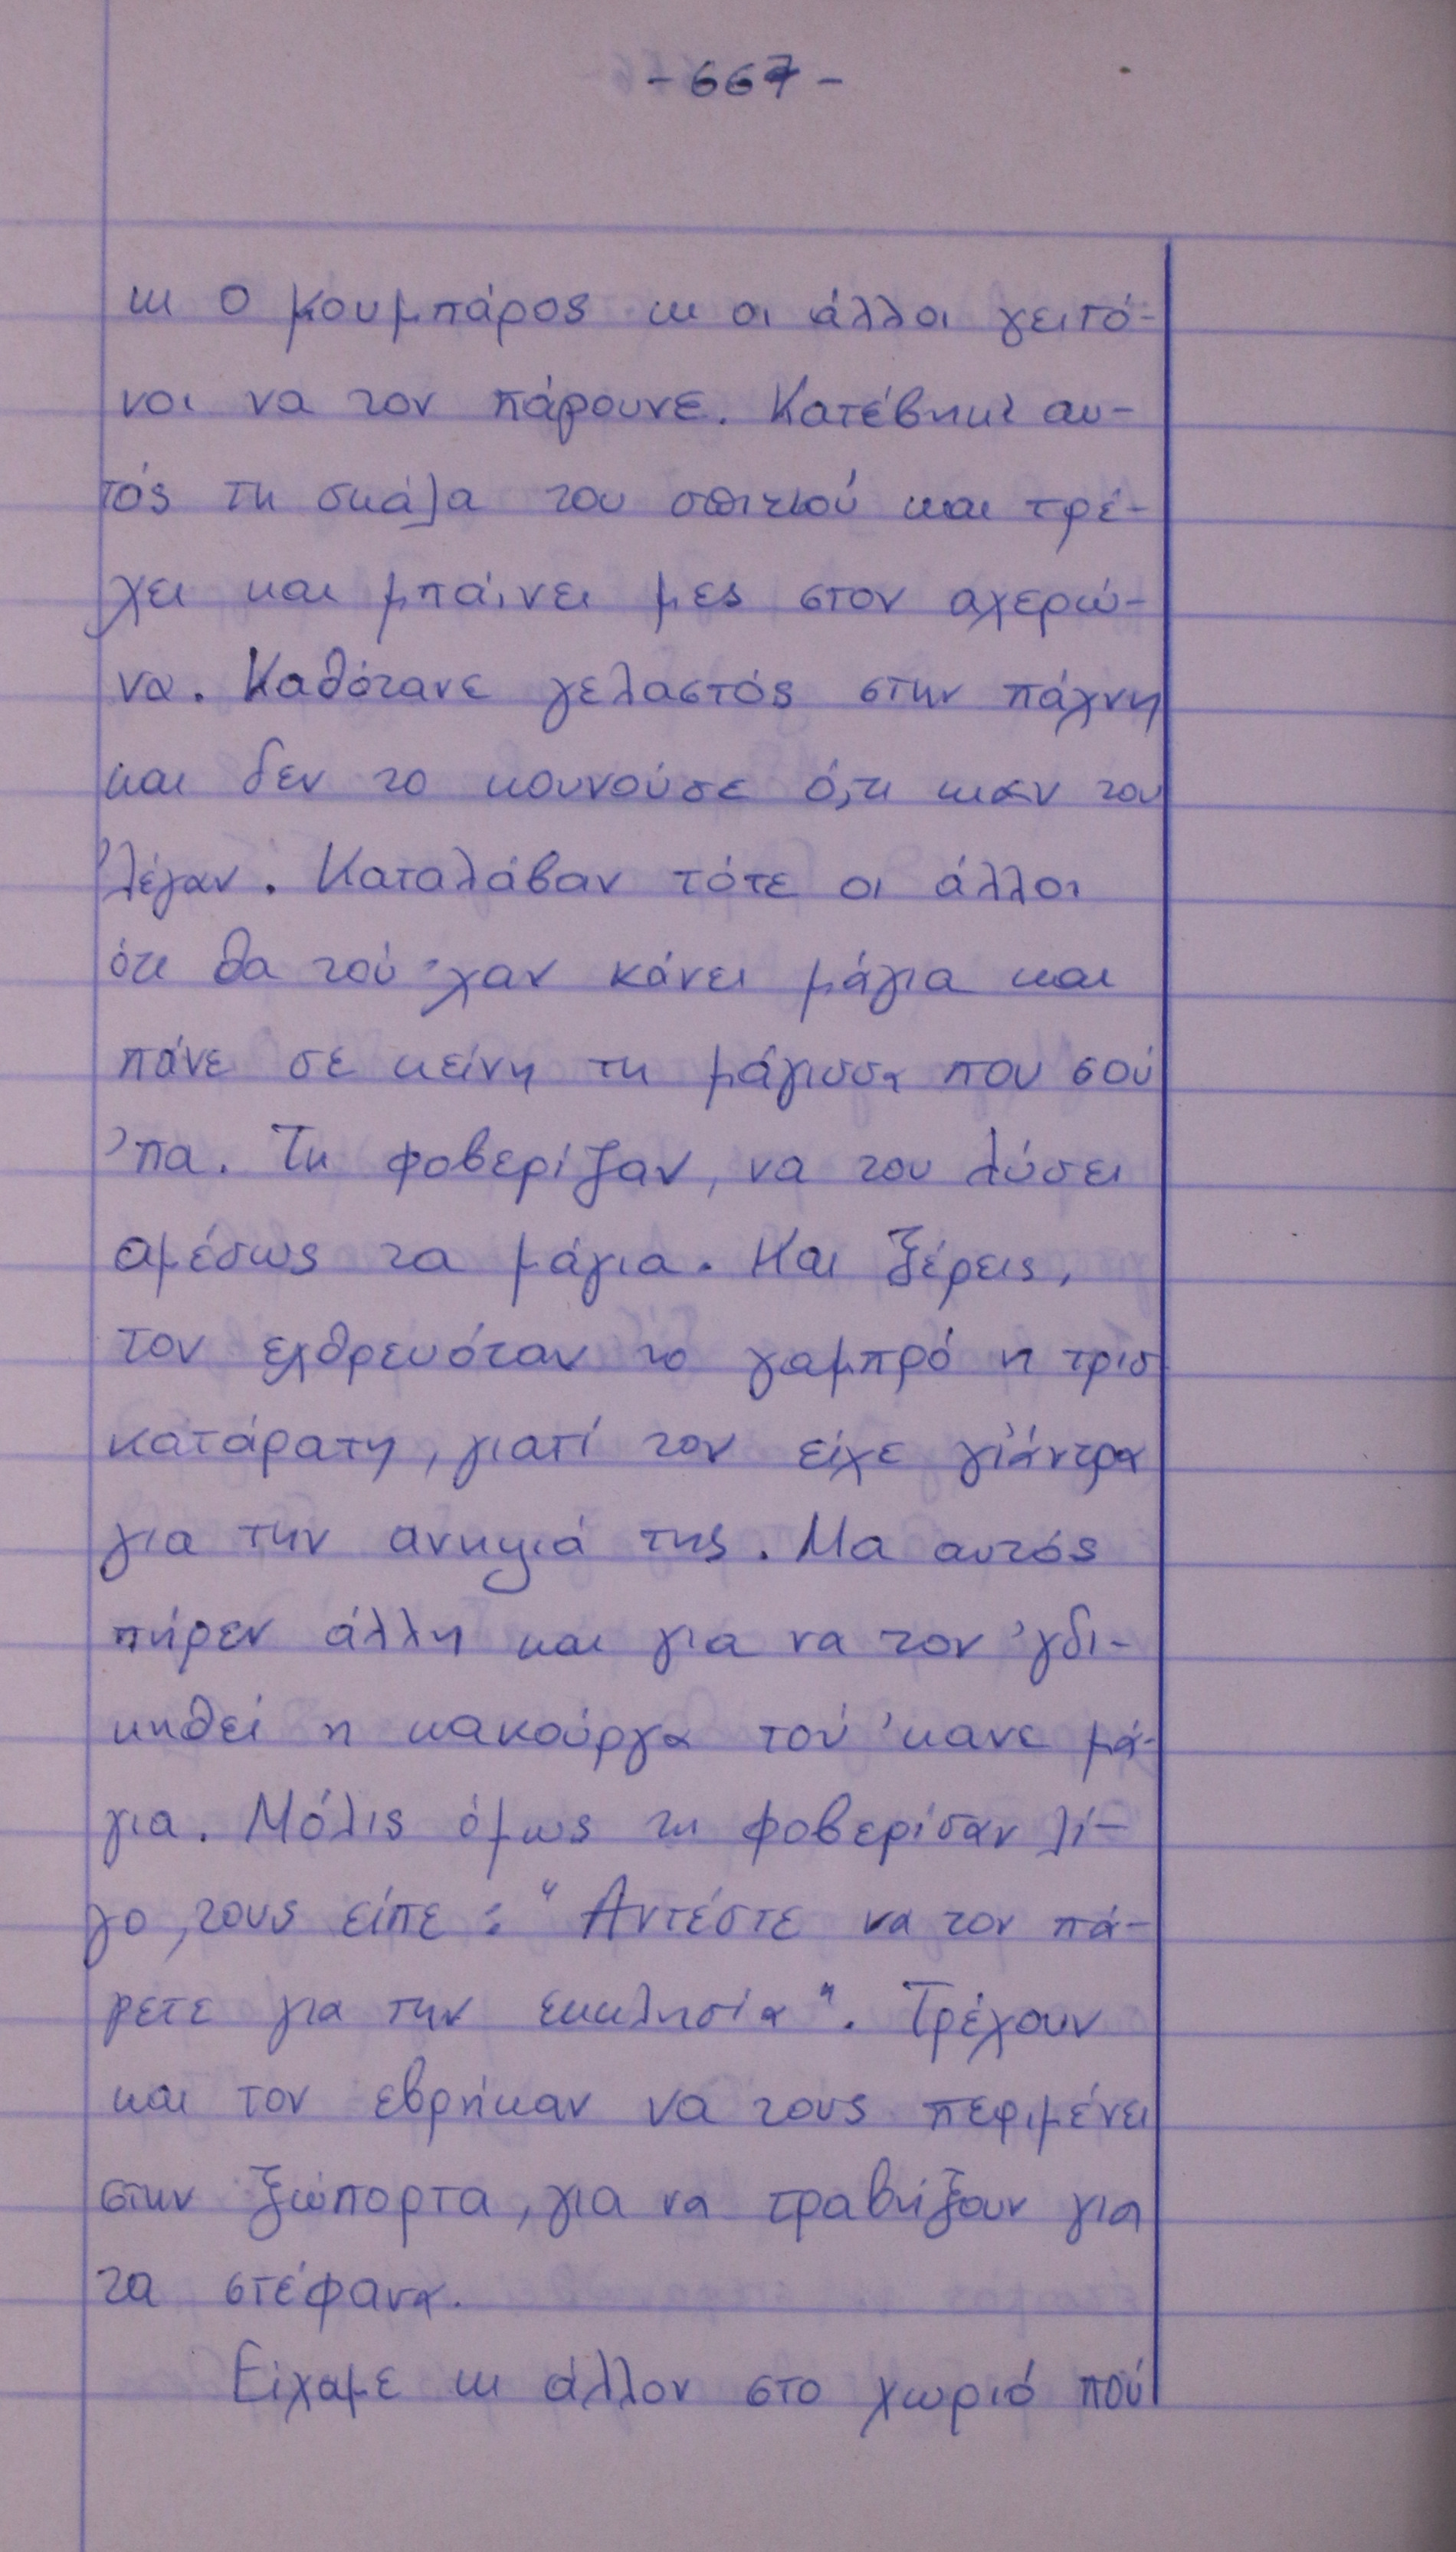 - 667 -
κι ο κουμπάρος κι οι άλλοι γειτό-
νοι να τον πάρουνε. Κατέβηκε αυ-
τός τη σκάλα του σπιτιού και τρέ-
χει και μπαίνει μες στον αχερώ-
να. Καθότανε γελαστός στην πάχνη
και δεν το κουνούσε ό,τι καν του
'λέγαν. Καταλάβαν τότε οι άλλοι
ότι θα τού 'χαν κάνει μάγια και
πάνε σε κείνη τη μάγισσα που σού
'πα. Τη φοβερίζαν, να του λύσει
αμέσως τα μάγια. Και ξέρεις,
τον εχθρευόταν το γαμπρό η τρισ
κατάρατη, γιατί τον είχε γι' άντρα
για την ανηψιά της. Μα αυτός
πήρεν άλλη και για να τον 'γδι-
κηθεί η κακούργα τού 'κανε μά-
για. Μόλις όμως τη φοβερίσαν λί-
γο, τους είπε: "Αντέστε να τον πά-
ρετε για την εκκλησία". Τρέχουν
και τον εβρήκαν να τους περιμένει
στην ξώπορτα, για να τραβήξουν για
τα στέφανα.
Είχαμε κι άλλον στο χωριό πού